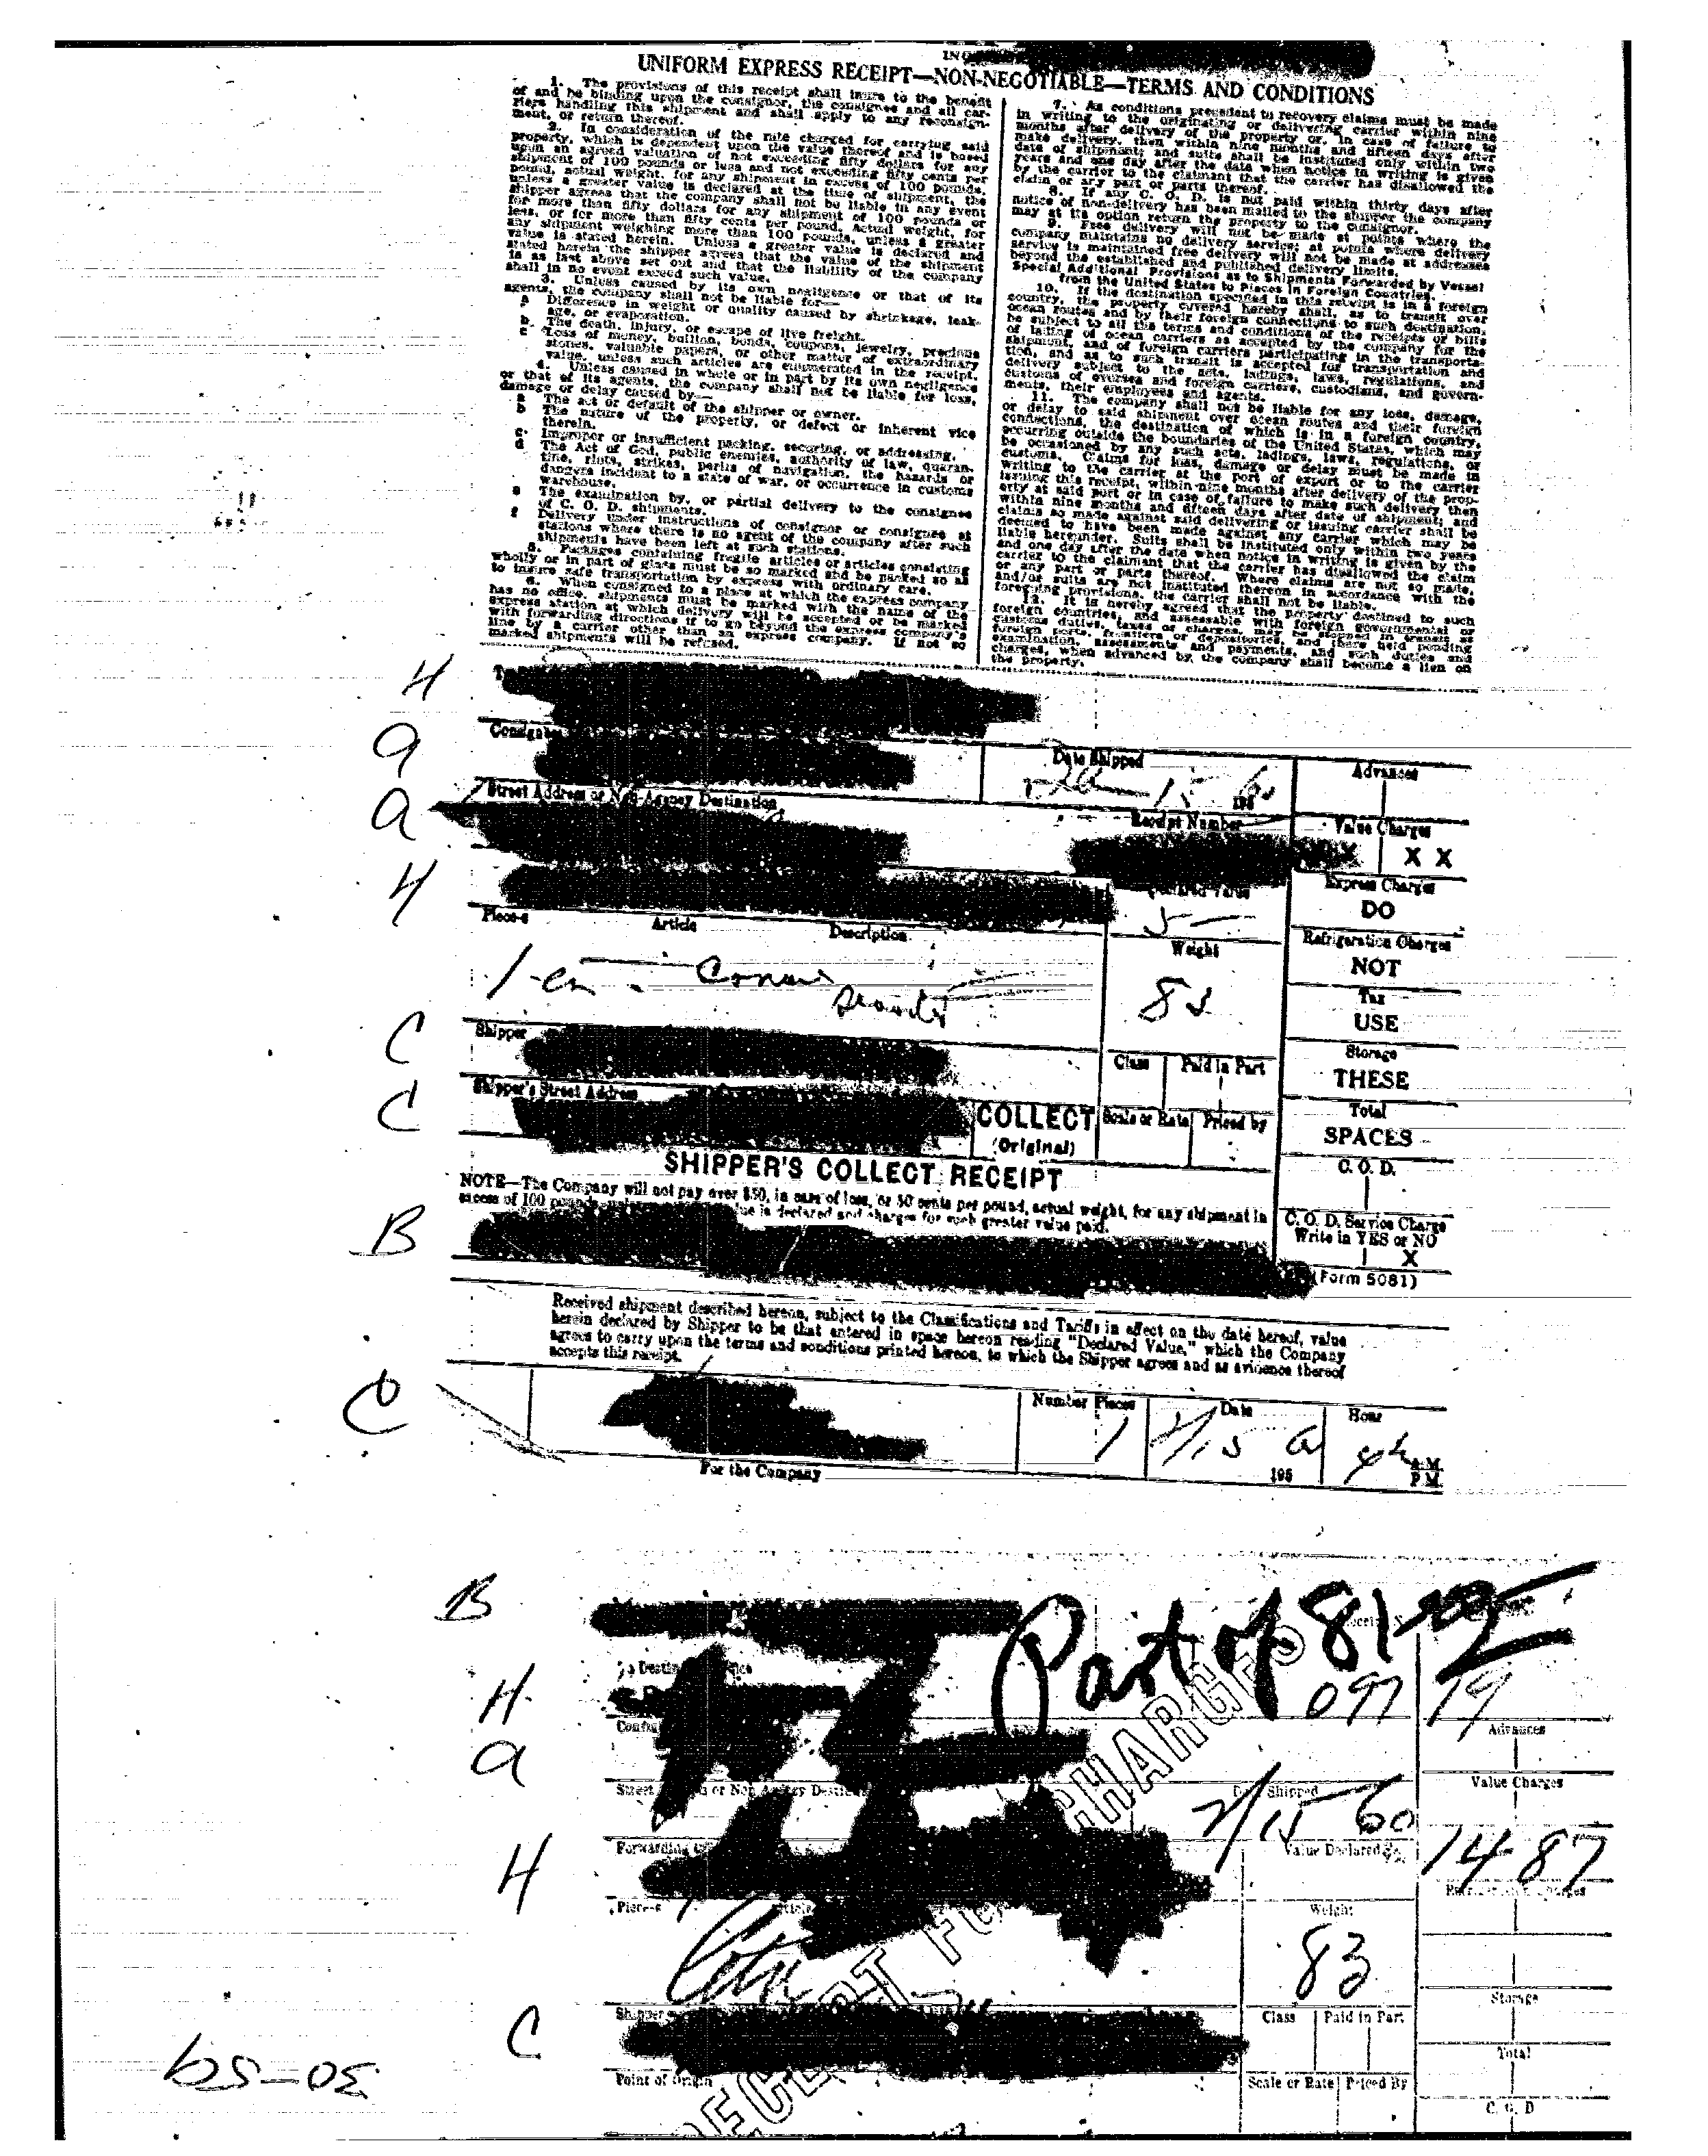 UNIFORM EXPRESS RECEIPT—NON-NEGOTIABLE—TERMS AND CONDITIONS
1. The provisions of this receipt shall inure to the benefit
of and be binding upon the consignor, the consignee and all car-
riers handling this shipment and shall apply to any reconsign-
ment, or return thereof.
2. In consideration of the rate charged for carrying said
property, which is dependent upon the value thereof and is based
upon an agreed valuation of not exceeding fifty dollars for any
shipment of 100 pounds or less and not exceeding fifty cents per
pound, actual weight, for any shipment in excess of 100 pounds,
unless a greater value is declared at the time of shipment, the
shipper agrees that the company shall not be liable in any event
for more than fifty dollars for any shipment of 100 pounds or
less, or for more than fifty cents per pound, actual weight, for
any shipment weighing more than 100 pounds, unless a greater
value is stated herein. Unless a greater value is declared and
stated herein the shipper agrees that the value of the shipment
is as last above set out and that the liability of the company
shall in no event exceed such value.
3. Unless caused by its own negligence or that of its
agents, the company shall not be liable for—
a Difference in weight or quality caused by shrinkage, leak-
age, or evaporation.
b. The death, injury, or escape of live freight.
c Loss of money, bullion, bonds, coupons, jewelry, precious
stones, valuable papers, or other matter of extraordinary
value, unless such articles are enumerated in the receipt.
4. Unless caused in whole or in part by its own negligence
or that of its agents, the company shall not be liable for loss,
damage or delay caused by—
a The act or default of the shipper or owner.
b The nature of the property, or defect or inherent vice
therein.
c Improper or insufficient packing, securing, or addressing.
d The Act of God, public enemies, authority of law, quaran-
tine, riots, strikes, perils of navigation, the hazards or
dangers incident to a state of war, or occurrence in customs
warehouse.
e The examination by, or partial delivery to the consignee
of C. O. D. shipments.
f Delivery under instructions of consignor or consignee at
stations where there is no agent of the company after such
shipments have been left at such stations.
5. Packages containing fragile articles or articles consisting
wholly or in part of glass must be so marked and be packed so as
to insure safe transportation by express with ordinary care.
6. When consigned to a place at which the express company
has no office, shipments must be marked with the name of the
express station at which delivery will be accepted or be marked
with forwarding directions if to go beyond the express company's
line by a carrier other than an express company. If not so
marked shipments will be refused.
7. As conditions precedent to recovery claims must be made
in writing to the originating or delivering carrier within nine
months after delivery of the property or, in case of failure to
make delivery, then within nine months and fifteen days after
date of shipment; and suits shall be instituted only within two
years and one day after the date when notice in writing is given
by the carrier to the claimant that the carrier has disallowed the
claim or any part or parts thereof.
8. If any C. O. D. is not paid within thirty days after
notice of non-delivery has been mailed to the shipper the company
may at its option return the property to the consignor.
9. Free delivery will not be made at points where the
company maintains no delivery service; at points where delivery
service is maintained free delivery will not be made at addresses
beyond the established and published delivery limits.
Special Additional Provisions as to Shipments Forwarded by Vessel
from the United States to Places in Foreign Countries.
10. If the destination specified in this receipt is in a foreign
country, the property covered hereby shall, as to transit over
ocean routes and by their foreign connections to such destination,
be subject to all the terms and conditions of the receipts or bills
of lading of ocean carriers as accepted by the company for the
shipment, and of foreign carriers participating in the transporta-
tion, and as to such transit is accepted for transportation and
delivery subject to the acts, ladings, laws, regulations, and
customs of oversea and foreign carriers, custodians, and govern-
ments, their employees and agents.
11. The company shall not be liable for any loss, damage,
or delay to said shipment over ocean routes and their foreign
connections, the destination of which is in a foreign country,
occurring outside the boundaries of the United States, which may
be occasioned by any such acts, ladings, laws, regulations, or
customs. Claims for loss, damage or delay must be made in
writing to the carrier at the port of export or to the carrier
issuing this receipt, within nine months after delivery of the prop-
erty at said port or in case of failure to make such delivery then
within nine months and fifteen days after date of shipment; and
claims so made against said delivering or issuing carrier shall be
deemed to have been made against any carrier which may be
liable hereunder. Suits shall be instituted only within two years
and one day after the date when notice in writing is given by the
carrier to the claimant that the carrier has disallowed the claim
or any part or parts thereof. Where claims are not so made,
and/or suits are not instituted thereon in accordance with the
foregoing provisions, the carrier shall not be liable.
12. It is hereby agreed that the property destined to such
foreign countries, and assessable with foreign governmental or
customs duties, taxes or charges, may be stopped in transit at
foreign ports, frontiers or depositories, and there held pending
examination, assessments and payments, and such duties and
charges, when advanced by the company shall become a lien on
the property.
H
Consignee
a
Date Shipped
Advances
15 60
Street Address or Non-Agency Destination
195
a
Receipt Number
Value Charges
X X X
H
Declared Value
Express Charges
5—
DO
Pieces
Article
Description
Weight
Refrigeration Charges
NOT
1
83
Tax
USE
C
Shipper
Class
Paid in Part
Storage
THESE
C
Shipper's Street Address
COLLECT
(Original)
Scale or Rate
Priced by
Total
SPACES
SHIPPER'S COLLECT RECEIPT
C. O. D.
NOTE—The Company will not pay over $50, in case of loss, or 50 cents per pound, actual weight, for any shipment in
excess of 100 pounds, unless greater value is declared and charges for such greater value paid.
B
C. O. D. Service Charge
Write in YES or NO
X
(Form 5081)
Received shipment described hereon, subject to the Classifications and Tariffs in effect on the date hereof, value
herein declared by Shipper to be that entered in space hereon reading "Declared Value," which the Company
agrees to carry upon the terms and conditions printed hereon, to which the Shipper agrees and as evidence thereof
accepts this receipt.
C
Number Pieces
Date
Hour
1
2/15
195
A.M.
P.M.
For the Company
B
Part of 81
H
097 79
Advances
a
Value Charges
Date Shipped
2/15 60
H
Forwarding
Value Declared
14 87
Pieces
Article
Weight
83
RECEIPT FOR CHARGES
C
Shipper
Class
Paid in Part
Storage
Point of Origin
Total
Scale or Rate
Priced By
C. O. D
30-59